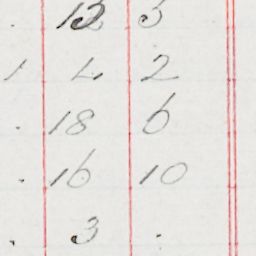 . 13 5
1 4 2
. 18 6
. 16 10
. 3 .